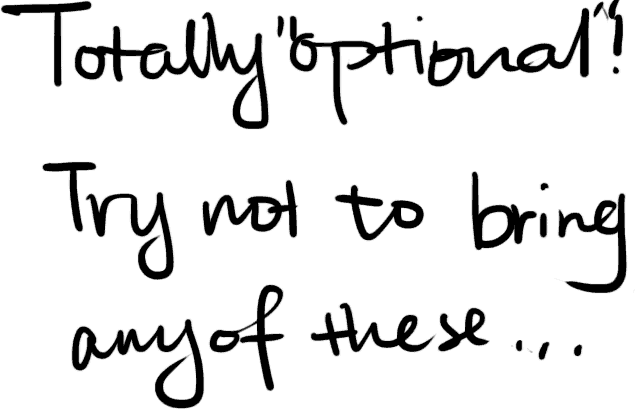 Totally "optional"!
Try not to bring
any of these...